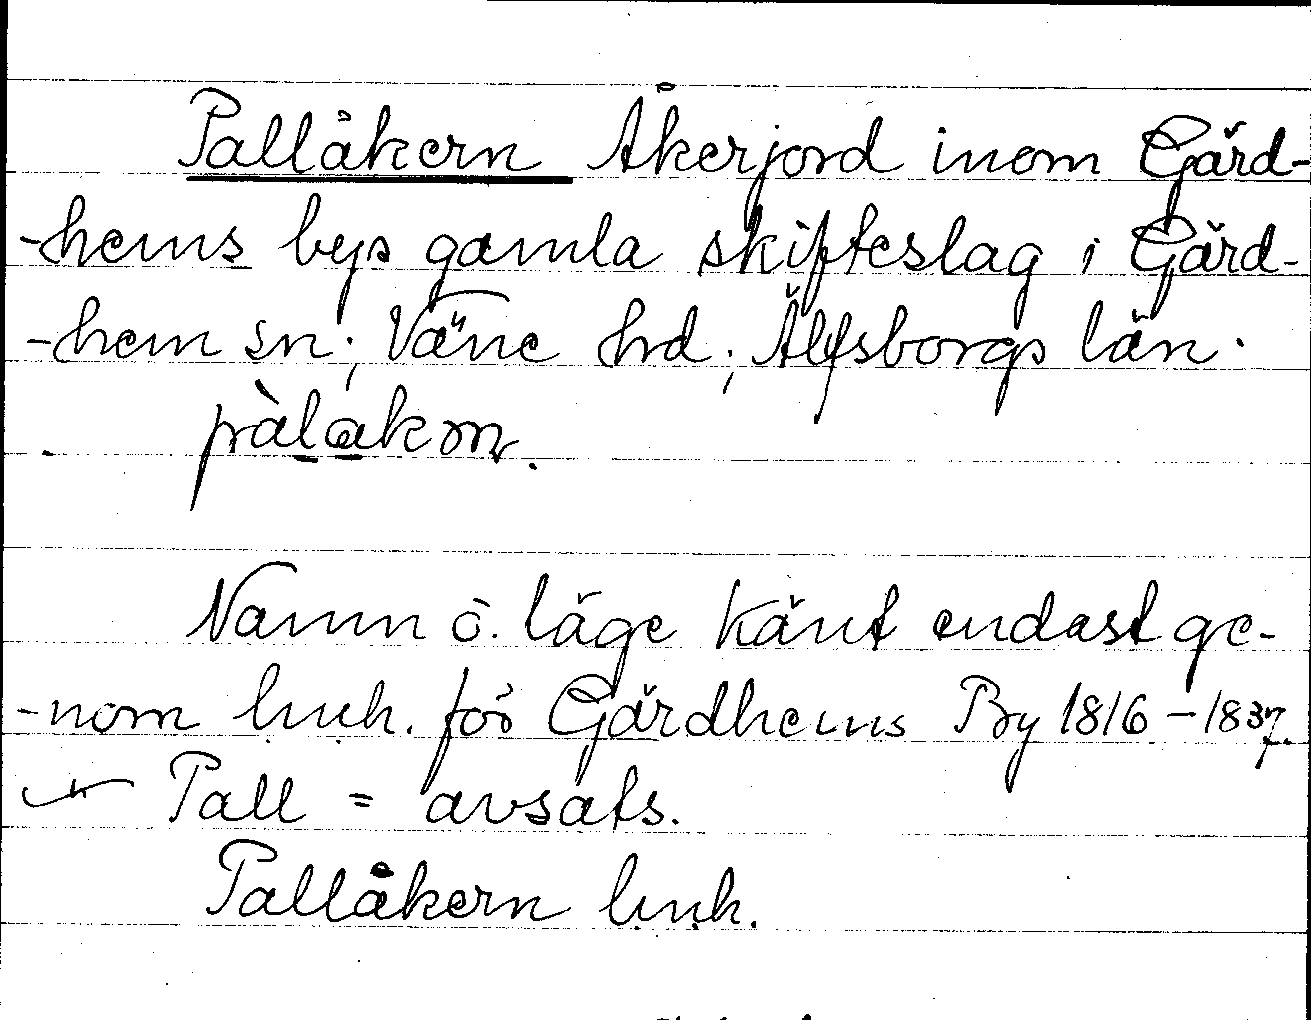 Pallåkern Åkerjord inom Gärd-
-hems bys gamla skifteslag i Gärd-
-hem sn; Väne hd; Älfsborgs län.
pàlakɷn.
Namn o. läge känt endast ge-
-nom l.u.h. för Gärdhems By 1816-1837.
Pall = avsats.
Pallåkern l.u.h.